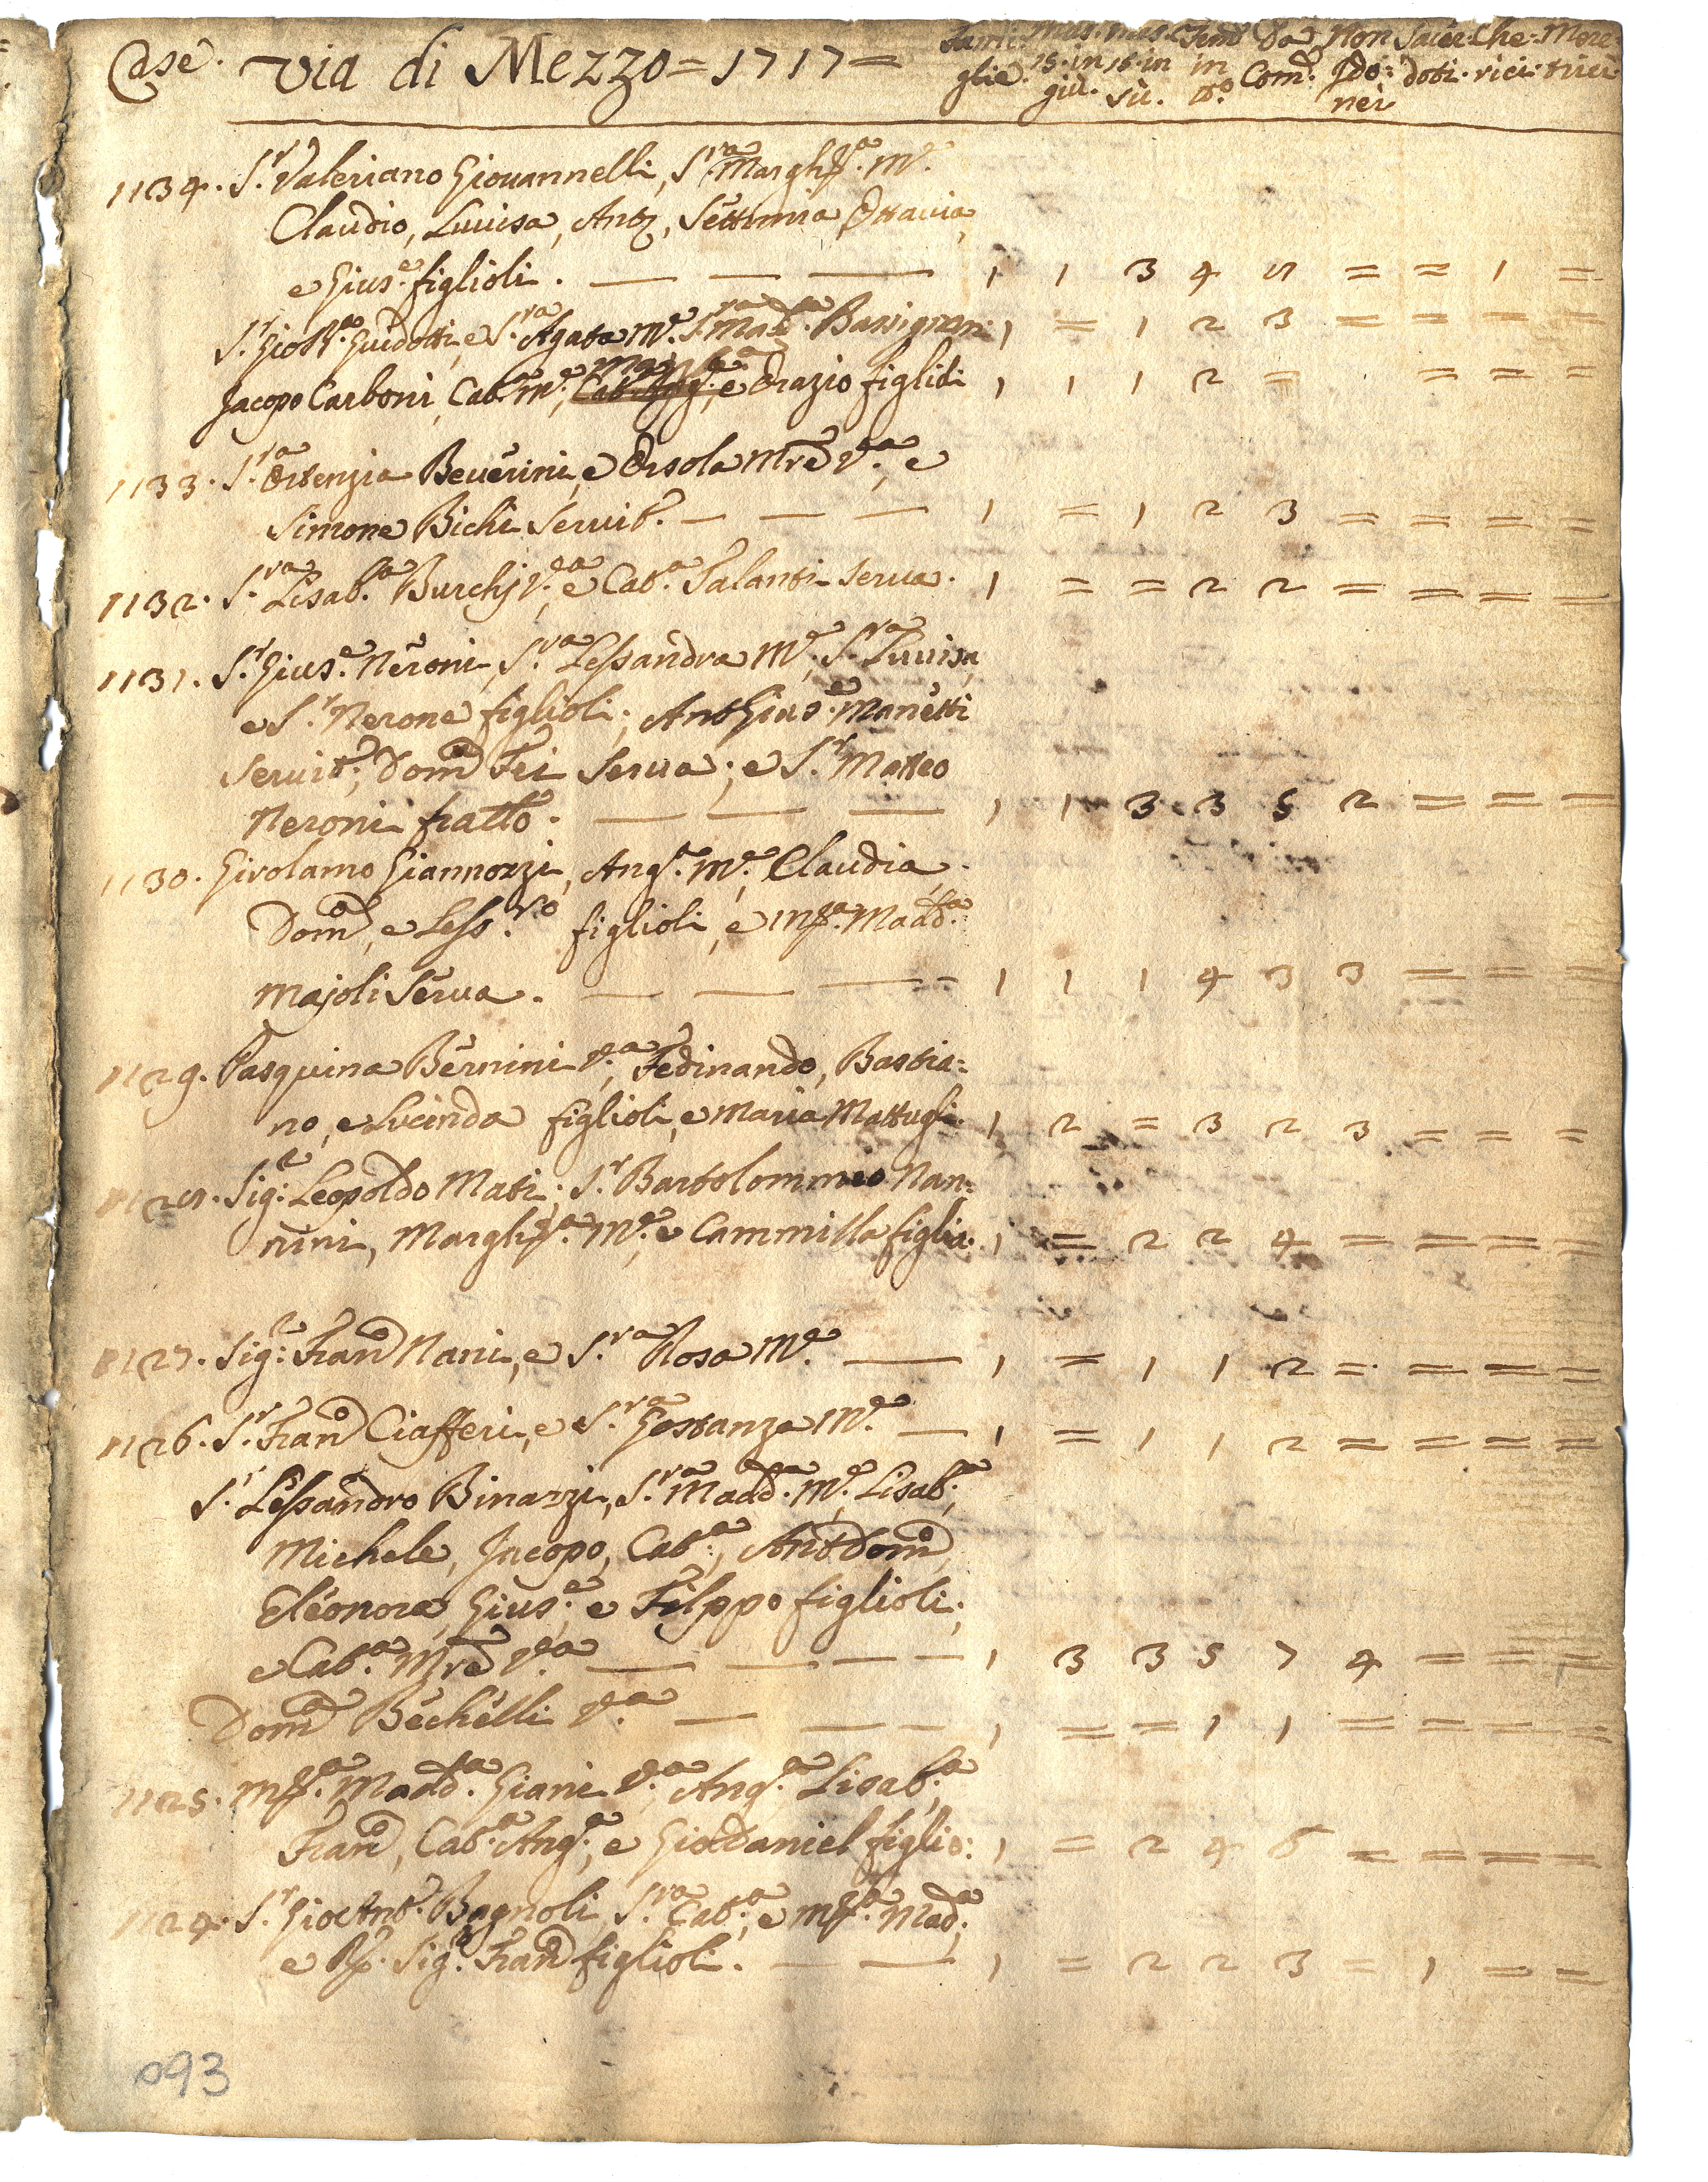 Case. Via di Mezzo = 1717 = Fami: glie. Mas. 15. in giù. mas. 15. in sù. Fem.e in tt.o Da Com.e Non Ido: nei Sacer: doti. Che: rici. Mere: trici
1134. S.r Valeriano Giouannelli, S.ra Margh.ta M.e
Claudio, Luuisa, Ant.o, Settimia Ottauia,
e Gius.e figlioli. — — — 1 1 3 4 5 = = 1 =
S.r Gio Bta. Guidotti, e S.ra Agata M.e S.ra Mad.a Bassignani 1 = 1 2 3 = = = =
Jacopo Carboni, Cat.a M.e, e Orazio figlioli 1 1 1 2 = = = =
1133. S.ra Ortenzia Beuerini, e Orsola Mre V.a, e
Simone Bichi Seruit.e — — — 1 = 1 2 3 = = = =
1132. S.ra Lisab.ta Burchj V.a, e Cat.a Talanti Serua. 1 = = 2 2 = = = =
1131. S.r Gius.e Neroni, S.ra Lessandra M.e, S.ra Luuisa,
e S.r Nerone figlioli; Ant Gius.e Manetti
Seruit.e; Dom.a Fei Serua; e S.r Matteo
Neroni fratlo. — — — 1 1 3 3 5 2 = = =
1130. Girolamo Giannozzi, Ang.a M.e, Claudia,
Dom.a, e Less.ro figlioli, e M.a Madd.a
Majoli Serua. — — — 1 1 1 4 3 3 = = =
1129. Pasquina Bernini V.a, Fedinando, Bastia=
no, e Lucinda figlioli, e Maria Mattugli. 1 2 = 3 2 3 = = =
1128. Sig.r Leopoldo Mati. S.r Bartolommeo Nan=
nini, Margh.ta M.e, e Cammilla figlia. 1 = 2 2 4 = = = =
1127. Sig.r Fran.o Nani, e S.ra Rosa M.e — 1 = 1 1 2 = = = =
1126. S.r Fran.o Ciafferi, e S.ra Gostanza M.e — 1 = 1 1 2 = = = =
S.r Lessandro Binazzi, S.ra Madd.a M.e, Lisab.ta,
Michele, Jacopo, Cat.a, Ant Dom.o,
Eleonora, Gius.e, e Filppo figlioli;
e Cat.a Mre V.a — — — — 1 3 3 5 7 4 = = =
Dom.a Bechelli V.a — — — 1 = = 1 1 = = = =
1125. M.a Madd.a Giani V.a, Ang.a Lisab.ta,
Fran.o, Cat.a Ang.a, e Gio Daniel figlio: 1 = 2 4 6 = = = =
1124. S.r Gio Ant.o Bagnoli, S.ra Cat.a, e M.a Mad.a,
e R.e Sig.r Fran.o figlioli. — — 1 = 2 2 3 = 1 = =
093